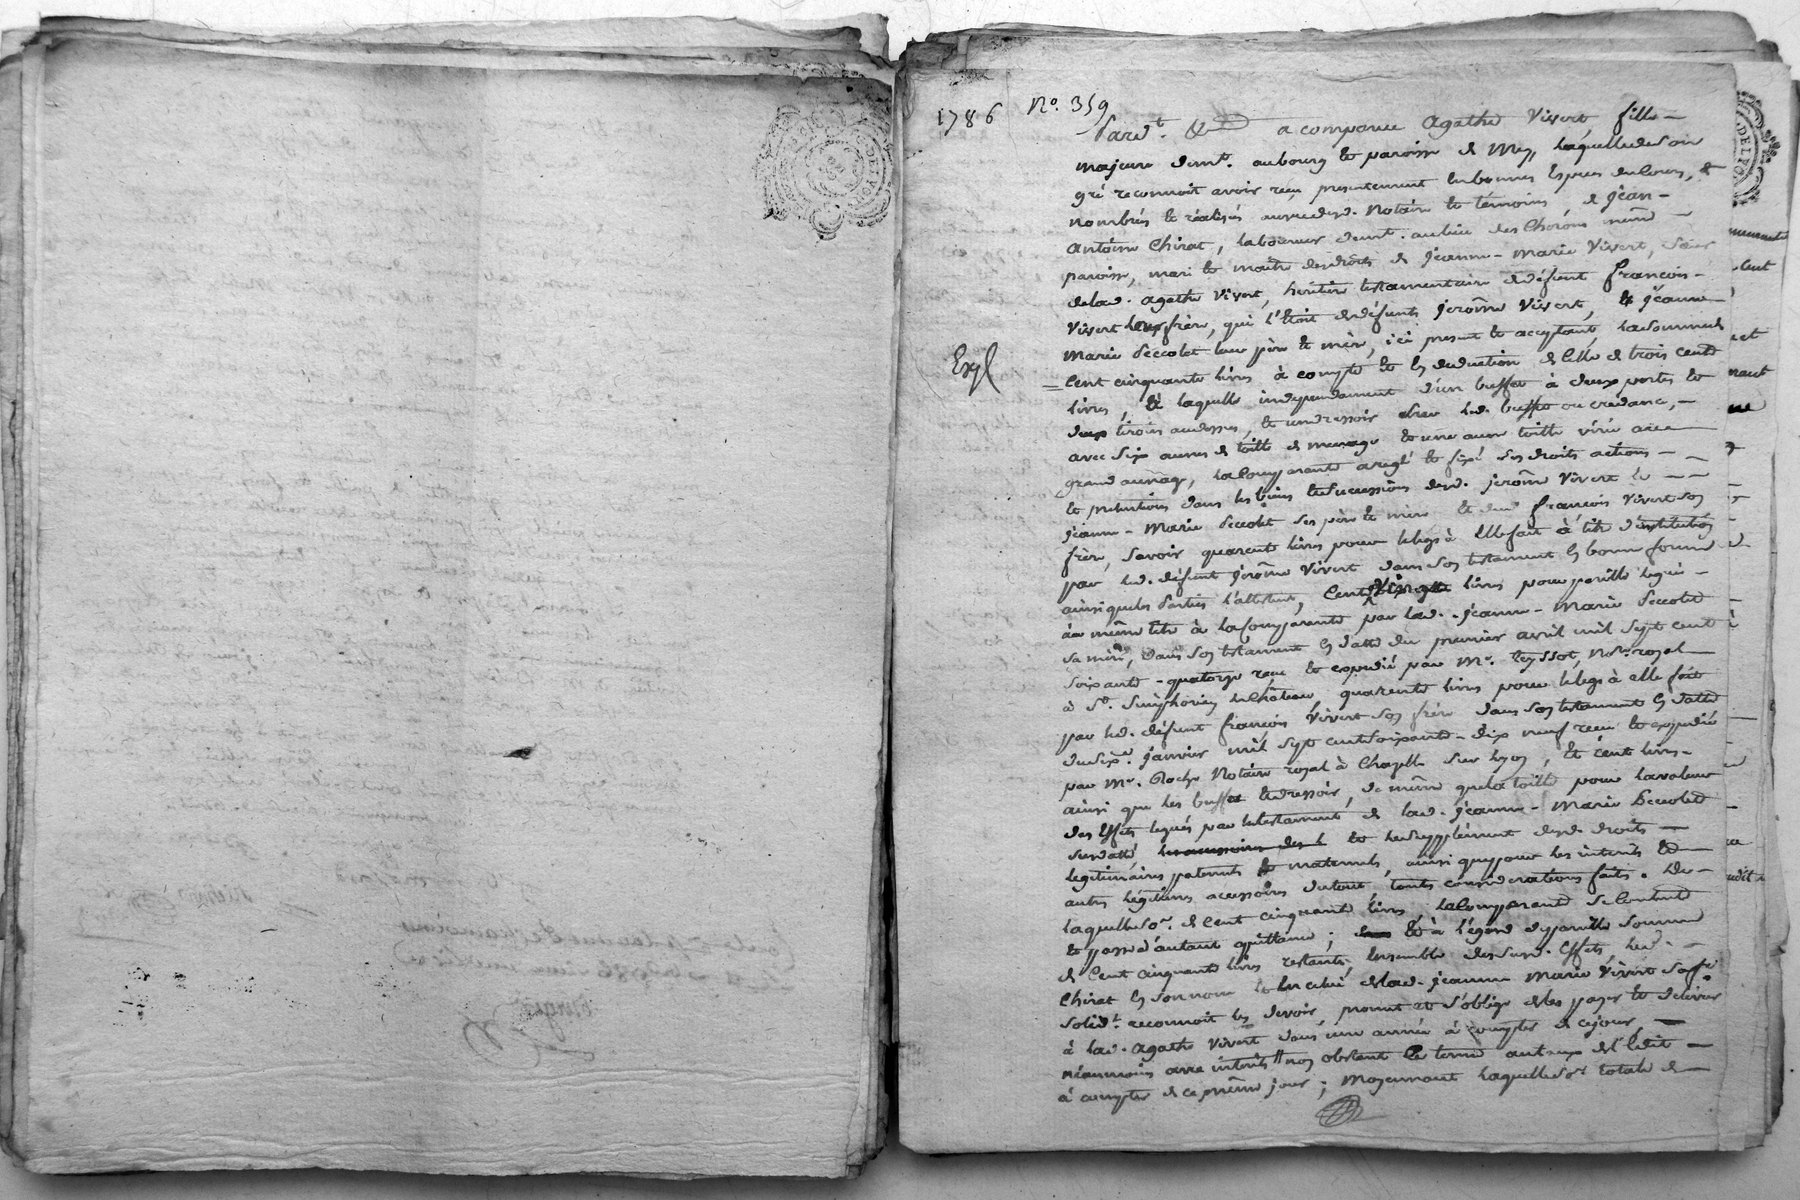 1786 N°. 359
Pard.t &c a comparue Agathe Vivert fille
majeure demt. au bourg et paroisse de Mey, laquelle de son
gré reconnoit avoir reçu presentement en bonnes Espèces de Cours, et
nombrés et réalisés au vu desd. Notaire et témoins, de Jean-
Antoine Chirat, laboureur demt. au lieu des Chirons même
paroisse, mari et maître des droits de Jeanne-Marie Vivert, Sœur
de lad. Agathe Vivert, héritière testamentaire de défunt François
Vivert leur frère, qui l'étoit de défunts Jerôme Vivert, et Jeanne
Marie Peccolet leur père et mère, ici present et acceptant, la somme de
Expl
Cent cinquante livres à compte et en deduction de Celle de trois cents
livres, à laquelle independamment d'un buffet à deux portes et
deux tiroirs au dessus, et un dressoir led. buffet ou crédance,
avec six aunes de toille de menage et une aune toille
grand aunage, la Comparante a reglé et fixé ses droits actions
et pretentions dans les biens et Successions desd. Jerôme Vivert et
Jeanne-Marie Peccolet ses père et mère et dud. François Vivert son
frère, Savoir quarente livres pour le legs à Elle fait à titre d'institution
par led. défunt Jerôme Vivert dans son testament en bonne forme
ainsi que les Parties l'attestent, Cent Vingt livres pour pareille leguée
au même titre à la Comparante par lad. Jeanne-Marie Peccolet
sa mère, dans son testament en datte du premier avril mil sept cent
soixante-quatorze reçu et expedié par Me. Teyssot, Nore. royal
à St. Simphorien le Château, quarente livres pour le legs à elle fait
par led. défunt François Vivert son frère dans son testament en datte
du six. Janvier mil sept cent soixante-dix neuf reçu et expedié
par Me. Notaire royal à Chazelle sur Lyon, et Cent livres
ainsi que les buffet et dressoir, de même que la toille pour la valeur
des Effets legués par le testament de lad. Jeanne-Marie Peccolet
susdatté, et le supplément desd. droits
legitimaires paternels et maternels, ainsi que pour les interêts et
autres légitimes accessoires du tout, toutes considerations faites. De
laquelle Se. de Cent cinquante livres la Comparante se Contente
et passe d'autant quittance; et à l'égard de pareille somme
de Cent cinquante livres restante, ensemble des susd. Effets led.
Chirat en son nom et en celui de lad. Jeanne Marie Vivert sa fe.
solidt. reconnoit les devoir, promet et s'oblige de les payer et delivrer
à lad. Agathe Vivert dans une année à compter de ce jour
néanmoins avec interêts non obstant le terme au taux de l'Edit
à compter de ce même jour; Moyennant laquelle Se. totale de